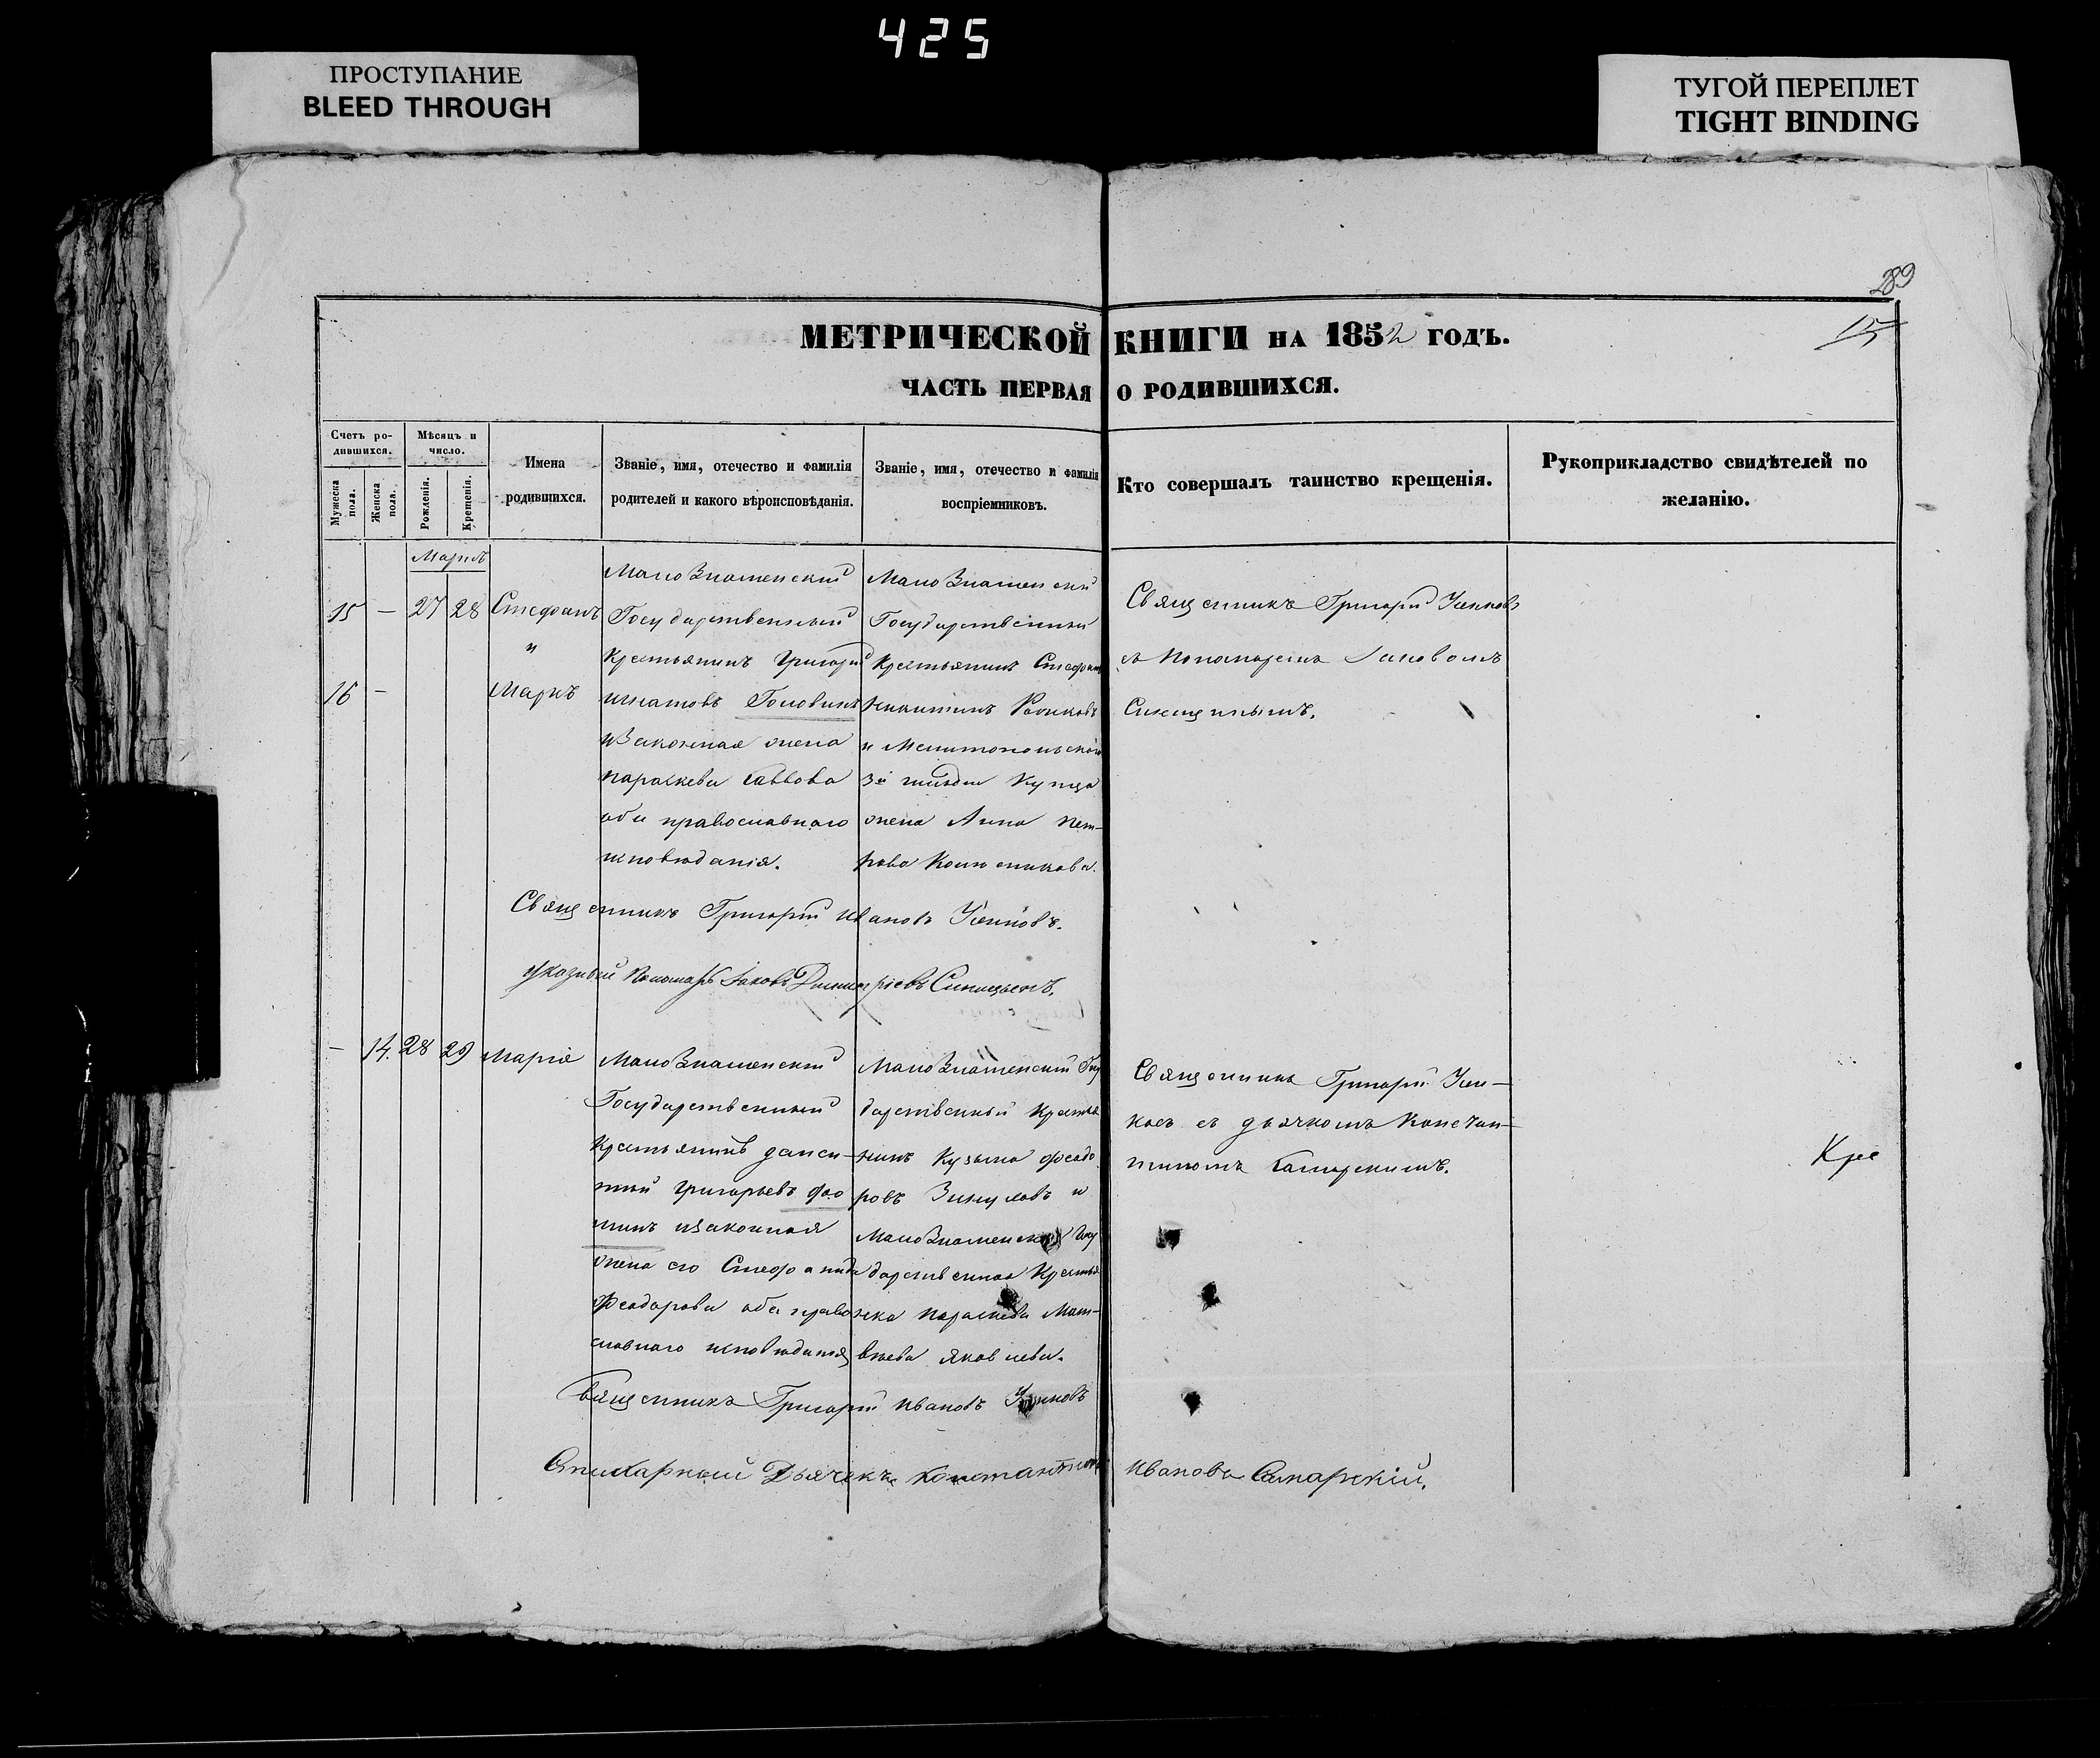 425
ПРОСТУПАНИЕ
BLEED THROUGH
ТУГОЙ ПЕРЕПЛЕТ
TIGHT BINDING
289
15
МЕТРИЧЕСКОЙ КНИГИ НА 1852 ГОДЪ.
ЧАСТЬ ПЕРВАЯ О РОДИВШИХСЯ.
Счетъ ро-
дившихся.
Мужеска пола.
Женска пола.
Мѣсяцъ и
число.
Рожденія.
Крещенія.
Имена
родившихся.
Званіе, имя, отечество и фамилія
родителей и какого вѣроисповѣданія.
Званіе, имя, отечество и фамилія
воспріемниковъ.
Кто совершалъ таинство крещенія.
Рукоприкладство свидѣтелей по
желанію.
Мартъ
15 — 27 28
Стефанъ
и
16 —
Маркъ
Малознаменский
Государственный
Крестьянинъ Григорий
Игнатовъ Головинъ
и законная жена
Параскева Саввова
оба православного
исповѣданія.
Малознаменский
Государственный
Крестьянинъ Стефанъ
Никитинъ
и Мелитопольского
3й гильдии Купца
жена Анна Пет-
рова
Священникъ Григорий
съ Пономаремъ Іаковомъ
Синицынымъ.
Священникъ Григорий Ивановъ
Указный Пономарь Іаковъ Димитріевъ Синицынъ.
— 14. 28 29
Марія
Малознаменский
Государственный
Крестьянинъ
Григорьевъ Фо
минъ и законная
жена его Стефанида
Феодорова оба право
славного исповѣданія
Малознаменский Госу
дарственный Крестья
нинъ Кузьма Феодо
ровъ и
Малознаменская Госу
дарственная Крестья
нка Параскева Мат-
вѣева Яковлева.
Священникъ Григорий
съ дьячкомъ Констан-
тиномъ Самарскимъ.
Кре
Священникъ Григорий Ивановъ
Дьячекъ Константинъ Ивановъ Самарскій.